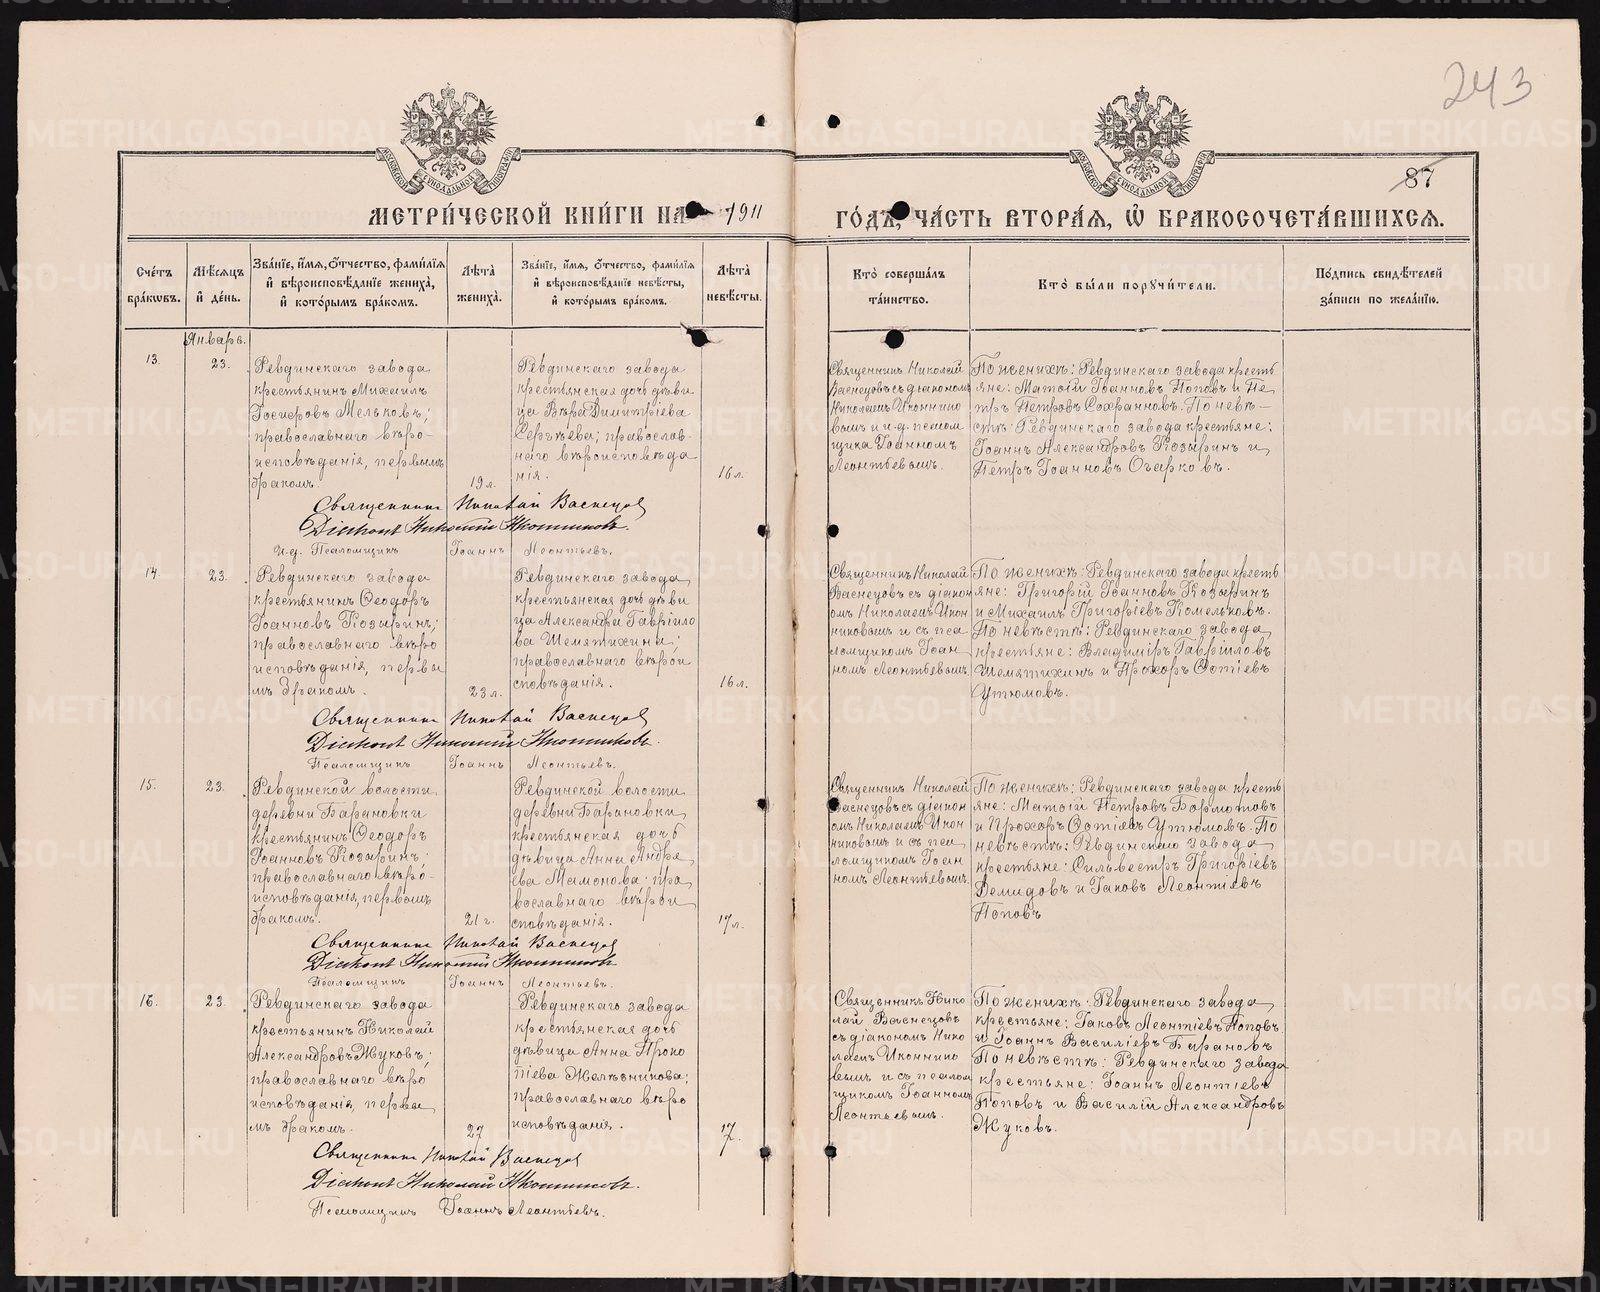 243
87
МОСКОВСКОЙ СѴНОДАЛЬНОЙ ТИПОГРАФІИ
МОСКОВСКОЙ СѴНОДАЛЬНОЙ ТИПОГРАФІИ
МЕТРИ́ЧЕСКОЙ КНИ́ГИ НА 1911
ГО́ДЪ, ЧА́СТЬ ВТОРА́Я, Ѽ БРАКОСОЧЕТА́ВШИХСЯ.
Сче́тъ бра́кѡвъ.
Мѣ́сяцъ и҆ де́нь.
Зва́нїе, и҆́мя, ѻ҆́тчество, фами́лїя и҆ вѣроисповѣ́данїе жениха̀, и҆ кото́рымъ бра́комъ.
Лѣ́та жениха̀.
Зва́нїе, и҆́мя, ѻ҆́тчество, фами́лїя и҆ вѣроисповѣ́данїе невѣ́сты, и҆ кото́рымъ бра́комъ.
Лѣ́та невѣ́сты.
Кто̀ соверша́лъ та́инство.
Кто̀ бы́ли порꙋчи́тели.
По́дпись свидѣ́телей за́писи по жела́нїю.
Январь.
13.
23.
Ревдинскаго завода
крестьянинъ Михаилъ
Мельковъ;
православнаго вѣро-
исповѣданія, первымъ
бракомъ.
19 л.
Ревдинскаго завода
крестьянская дочь дѣви
ца Вѣра Димитріева
Сергѣева; православ-
наго вѣроисповѣда
нія.
16 л.
Священникъ Николай
Васнецовъ съ діакономъ
Николаемъ Иконнико
вымъ и и.д. псалом
щика Іоанномъ
Леонтьевымъ.
По женихѣ: Ревдинскаго завода кресть
яне: Матѳій Іоанновъ Поповъ и Пе
тръ Петровъ Сохранновъ. По невѣ-
стѣ: Ревдинскаго завода крестьяне:
Іоаннъ Александровъ Козыринъ и
Петръ Іоанновъ Огарковъ.
Священникъ Николай Васнецов
Діаконъ Николай Иконниковъ.
И.д. Псаломщикъ Іоаннъ Леонтьевъ.
14.
23.
Ревдинскаго завода
крестьянинъ Ѳеодоръ
Іоанновъ Козыринъ;
православнаго вѣро
исповѣданія, первы
мъ бракомъ.
23 л.
Ревдинскаго завода
крестьянская дочь дѣви
ца Александра Гавріило
ва Шемятихина;
православнаго вѣрои
сповѣданія.
16 л.
Священникъ Николай
Васнецовъ съ діакон
омъ Николаемъ Икон
никовымъ и съ пса
ломщикомъ Іоан
номъ Леонтьевымъ.
По женихѣ: Ревдинскаго завода кресть
яне: Григорій Іоанновъ Козыринъ
и Михаилъ Григоріевъ Комельковъ.
По невѣстѣ: Ревдинскаго завода
крестьяне: Владиміръ Гавріиловъ
Шемятихинъ и Прохоръ Ѳотіевъ
Утюмовъ.
Священникъ Николай Васнецов
Діаконъ Николай Иконниковъ.
Псаломщикъ Іоаннъ Леонтьевъ.
15.
23.
Ревдинской волости
деревни Барановки
крестьянинъ Ѳеодоръ
Іоанновъ Козыринъ;
православнаго вѣро-
исповѣданія, первымъ
бракомъ.
21 г.
Ревдинской волости
деревни Барановки
крестьянская дочь
дѣвица Анна Андре
ева Мамонова; пра
вославнаго вѣрои
сповѣданія.
17 л.
Священникъ Николай
Васнецовъ съ діакон
омъ Николаемъ Икон
никовымъ и съ пса
ломщикомъ Іоан
номъ Леонтьевымъ.
По женихѣ: Ревдинскаго завода кресть
яне: Матѳій Петровъ Бормотовъ
и Прохоръ Ѳотіевъ Утюмовъ. По
невѣстѣ: Ревдинскаго завода
крестьяне: Сильвестръ Григоріевъ
Демидовъ и Іаковъ Леонтіевъ
Поповъ
Священникъ Николай Васнецов
Діаконъ Николай Иконниковъ
Псаломщикъ Іоаннъ Леонтьевъ.
16.
23.
Ревдинскаго завода
крестьянинъ Николай
Александровъ Жуковъ;
православнаго вѣро
исповѣданія, первы
мъ бракомъ.
27
Ревдинскаго завода
крестьянская дочь
дѣвица Анна Проко
піева Желѣзникова;
православнаго вѣро
исповѣданія.
17.
Священникъ Нико
лай Васнецовъ
съ діакономъ Нико
лаемъ Иконнико
вымъ и съ псалом
щикомъ Іоанномъ
Леонтьевымъ.
По женихѣ: Ревдинскаго завода
крестьяне: Іаковъ Леонтіевъ Поповъ
и Іоаннъ Василіевъ Барановъ
По невѣстѣ: Ревдинскаго завода
крестьяне: Іоаннъ Леонтіевъ
Поповъ и Василій Александровъ
Жуковъ.
Священникъ Николай Васнецов
Діаконъ Николай Иконниковъ.
Псаломщикъ Іоаннъ Леонтьевъ.
METRIKI.GASO-URAL.RU